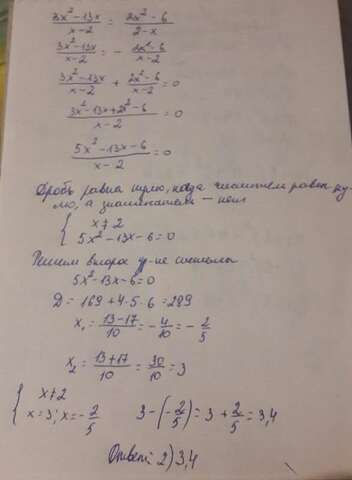 (3x²-13x)/(x-2) = (2x²-6)/(2-x)
(3x²-13x)/(x-2) = - (2x²-6)/(x-2)
(3x²-13x)/(x-2) + (2x²-6)/(x-2) = 0
(3x²-13x+2x²-6)/(x-2) = 0
(5x²-13x-6)/(x-2) = 0
Дробь равна нулю, когда числитель равен ну-
лю, а знаменатель - нет
{ x≠2
5x²-13x-6=0
Решим второе ур-ие системы
5x²-13x-6=0
D = 169+4·5·6=289
x₁ = (13-17)/10 = -4/10 = -2/5
x₂ = (13+17)/10 = 30/10 = 3
{ x≠2
x=3; x=-2/5 3-(-2/5) = 3 + 2/5 = 3,4
Ответ: 2) 3,4